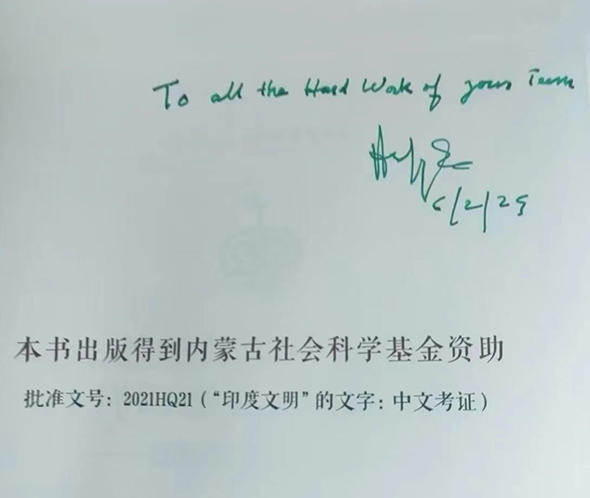 To all the Hard Work of your Team
6/2/25
本书出版得到内蒙古社会科学基金资助
批准文号：2021HQ21（“印度文明”的文字：中文考证）